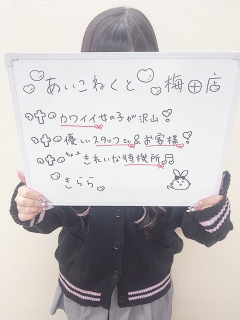 あいこねくと 梅田店
カワイイ女の子が沢山!
優しいスタッフさん&お客様!
きれいな待機所♬
きらら